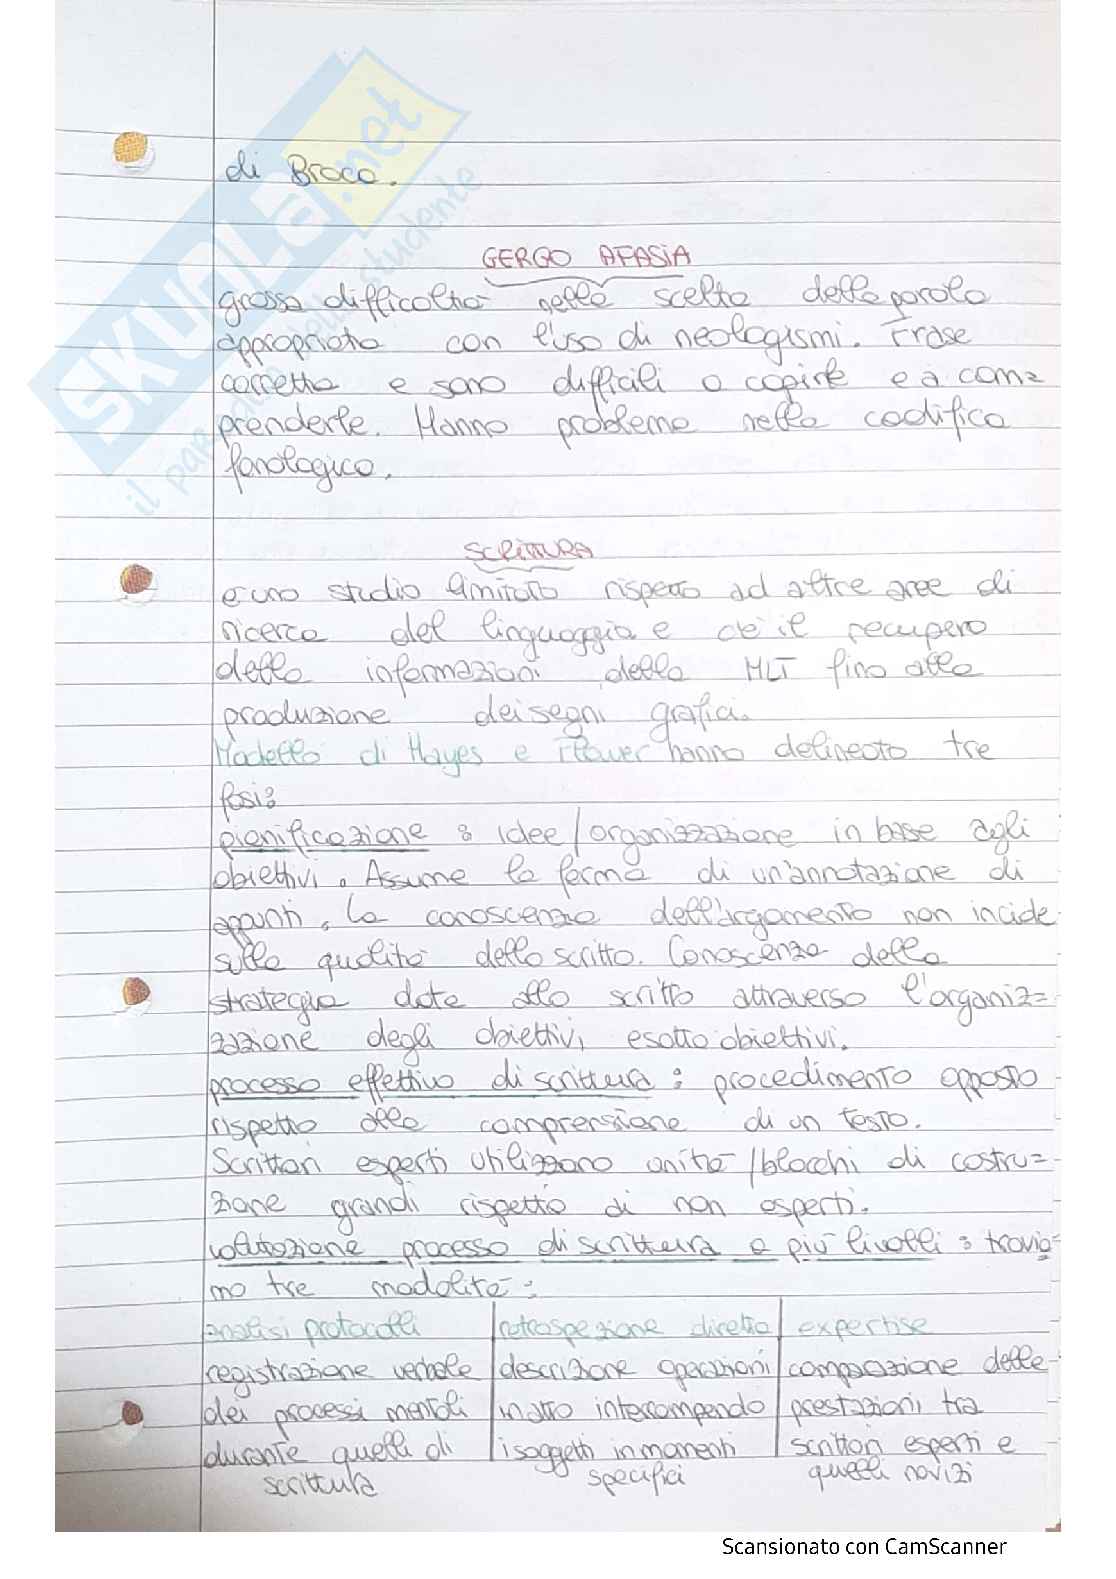 di Broca.
GERGO AFASIA
grossa difficoltà nella scelta della parola
appropriata con l'uso di neologismi. Frase
corretta e sono difficili a capirle e a com=
prenderle. Hanno problema nella codifica
fonologica.
SCRITTURA
è uno studio limitato rispetto ad altre aree di
ricerca del linguaggio e c'è il recupero
delle informazioni della MLT fino alla
produzione dei segni grafici.
Modello di Hayes e Flower hanno delineato tre
fasi:
pianificazione : idee/organizzazione in base agli
obiettivi. Assume la forma di un'annotazione di
appunti. La conoscenza dell'argomento non incide
sulla qualità dello scritto. Conoscenza della
strategia data allo scritto attraverso l'organiz=
zazione degli obiettivi, e sotto obiettivi.
processo effettivo di scrittura : procedimento opposto
rispetto alla comprensione di un testo.
Scrittori esperti utilizzano unità/blocchi di costru=
zione grandi rispetto di non esperti.
valutazione processo di scrittura a più livelli : trovia=
mo tre modalità :
analisi protocolli | retrospezione diretta | expertise
registrazione verbale | descrizione operazioni | comparazione delle
dei processi mentali | in atto interrompendo | prestazioni tra
durante quelli di | i soggetti in momenti | scrittori esperti e
scrittura specifici quelli novizi
SKUOLA.net
il paradiso dello studente
Scansionato con CamScanner